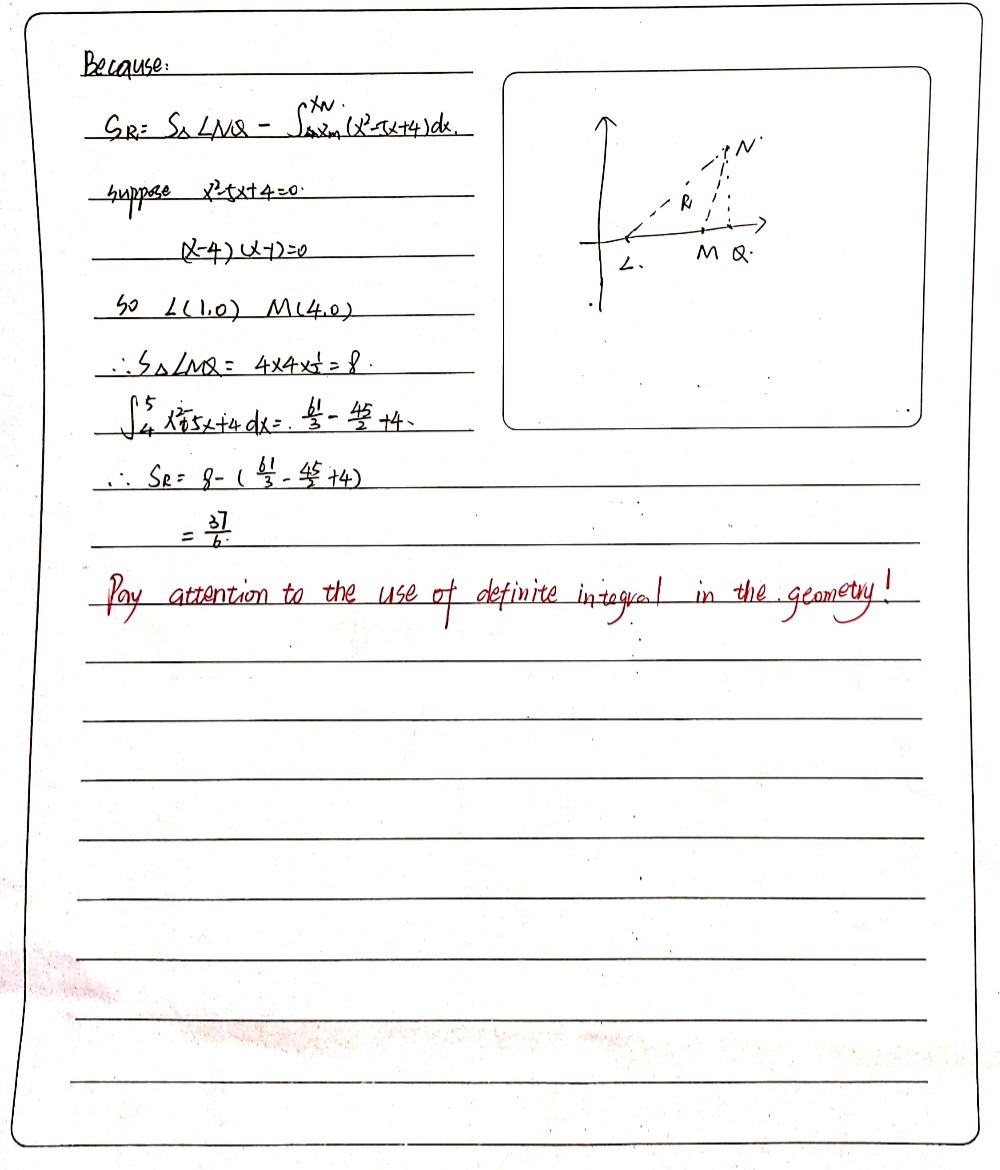 Because:
S_R = S_Δ LNQ - ∫_{x_m}^{x_N} (x²-5x+4)dx.
suppose x²-5x+4=0.
(x-4)(x-1)=0
So L(1,0) M(4,0)
∴ S_Δ LNQ = 4×4×½ = 8.
∫_4^5 x²-5x+4 dx = 61/3 - 45/2 +4.
∴ S_R = 8-(61/3 - 45/2 +4)
= 37/6.
Pay attention to the use of definite integral in the geometry!
N
R
L.
M Q.